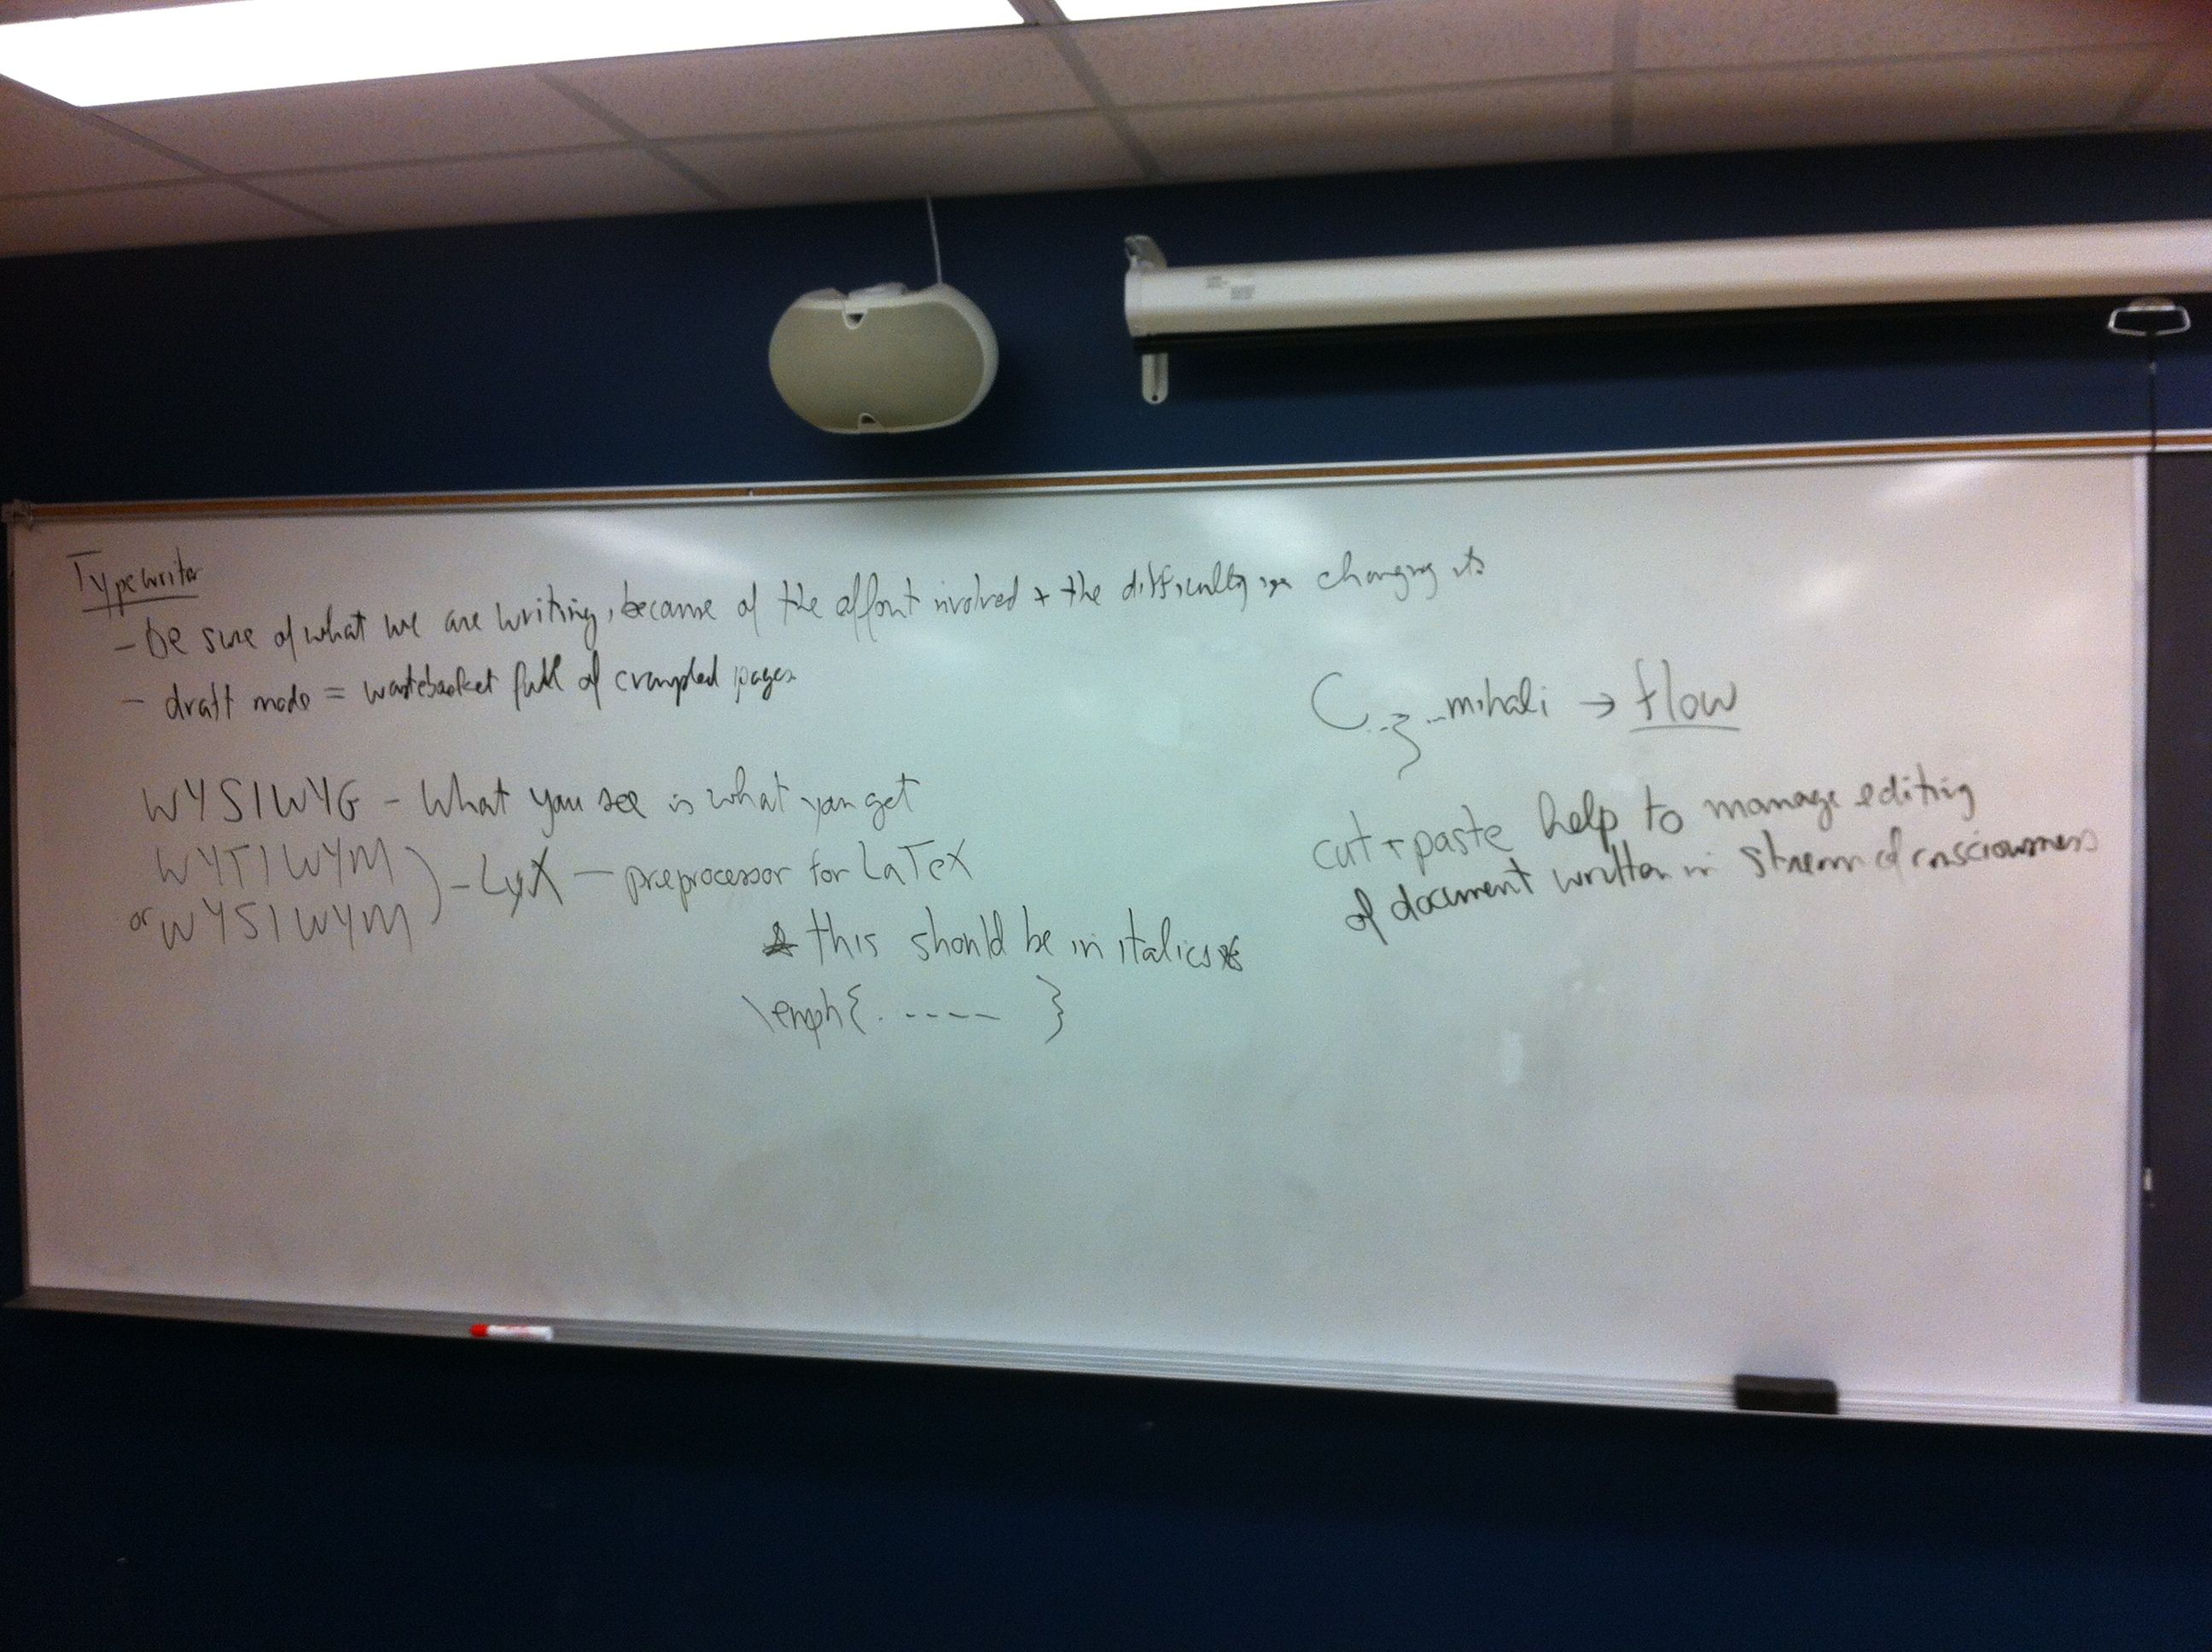 Typewriter
- be sure of what we are writing, because of the effort involved + the difficulty in changing it
- draft mode = wastebasket full of crumpled pages
WYSIWYG - What you see is what you get
WYTIWYM
or WYSIWYM ) - LyX - preprocessor for LaTeX
* this should be in italics *
\emph{. ---- }
C..z...mihali → flow
cut + paste help to manage editing
of document written in stream of consciousness